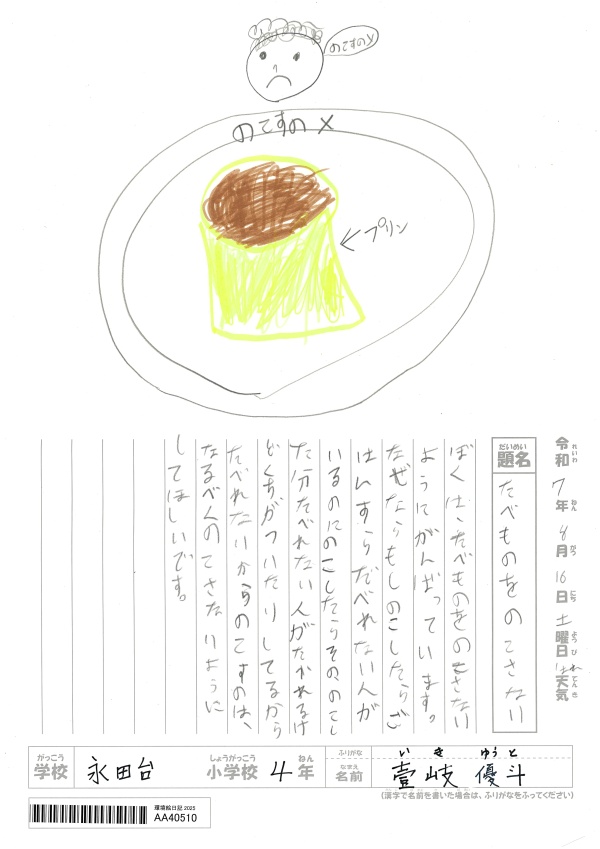 のこすの✕
のこすの ✕
←プリン
令和7年8月16日土曜日はれ天気
れいわ ねん がつ にち ようび てんき
だいめい
題名
たべものをのこさない
ぼくは、たべものをのこさない
ようにがんばっています。
なぜならもしのこしたらご
はんすらたべれない人が
いるのにのこしたらその、のこし
た分たべれない人がたかれるけ
どくちがついたりしてるから
たべれないからのこすのは、
なるべくのこさないように
してほしいです。
がっこう
学校
永田台
しょうがっこう
小学校
4
ねん
年
ふりがな
いき ゆうと
なまえ
名前
壹岐 優斗
(漢字で名前を書いた場合は、ふりがなをふってください)
環境絵日記 2025
AA40510